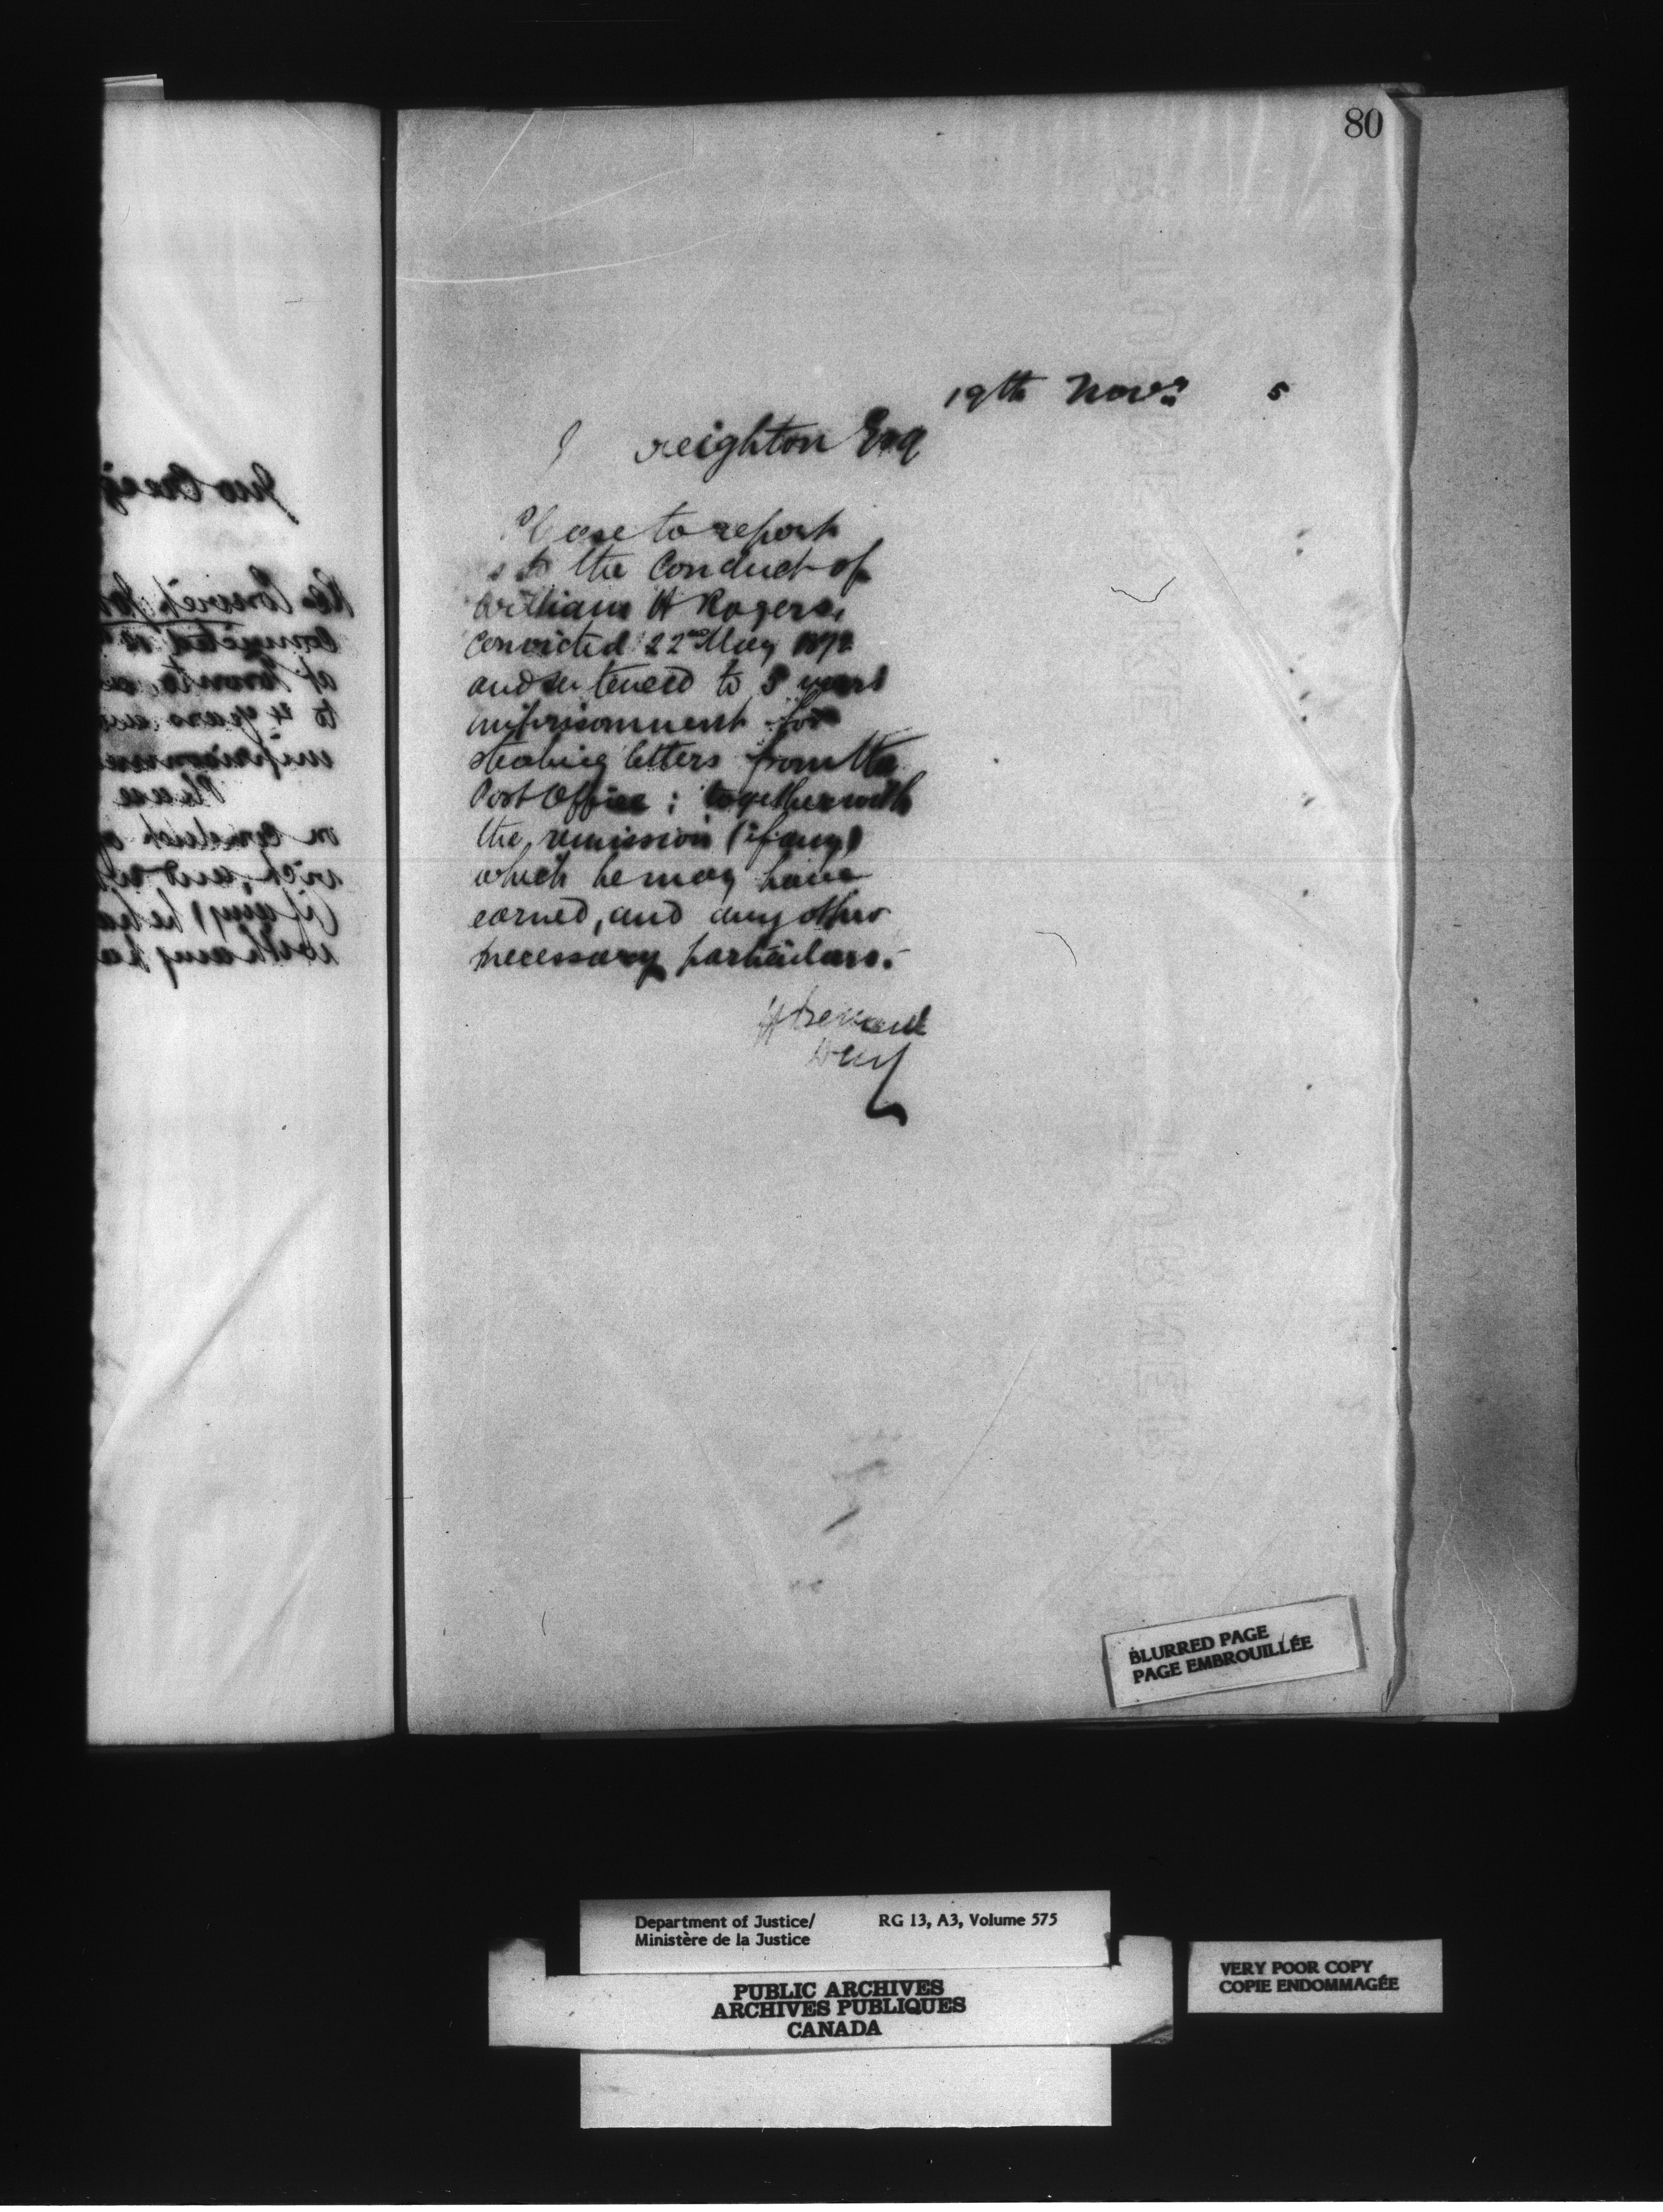 80
19th Novr 5
J reighton Esq
Please to report
s to the Conduct of
William H Rogers,
Convicted 22nd May 1872
and sentenced to 5 years
imprisonment for
stealing letters from the
Post Office ; together with
the remission (if any)
which he may have
earned, and any other
necessary particulars.
H Bernard
Jno Creig
Re Convict
Convicted
of Toronto
to 4 years
imprisonme
Please
conduct
(if any) he ha
with any
BLURRED PAGE
PAGE EMBROUILLÉE
Department of Justice/ RG 13, A3, Volume 575
Ministère de la Justice
PUBLIC ARCHIVES
ARCHIVES PUBLIQUES
CANADA
VERY POOR COPY
COPIE ENDOMMAGÉE